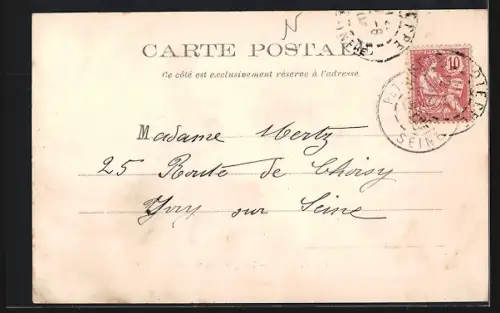 N
CARTE POSTALE
Ce côté est exclusivement réservé à l'adresse
10
DIEPPE
SEINE
Madame Mertz
25 Route de Choisy
Ivry sur Seine